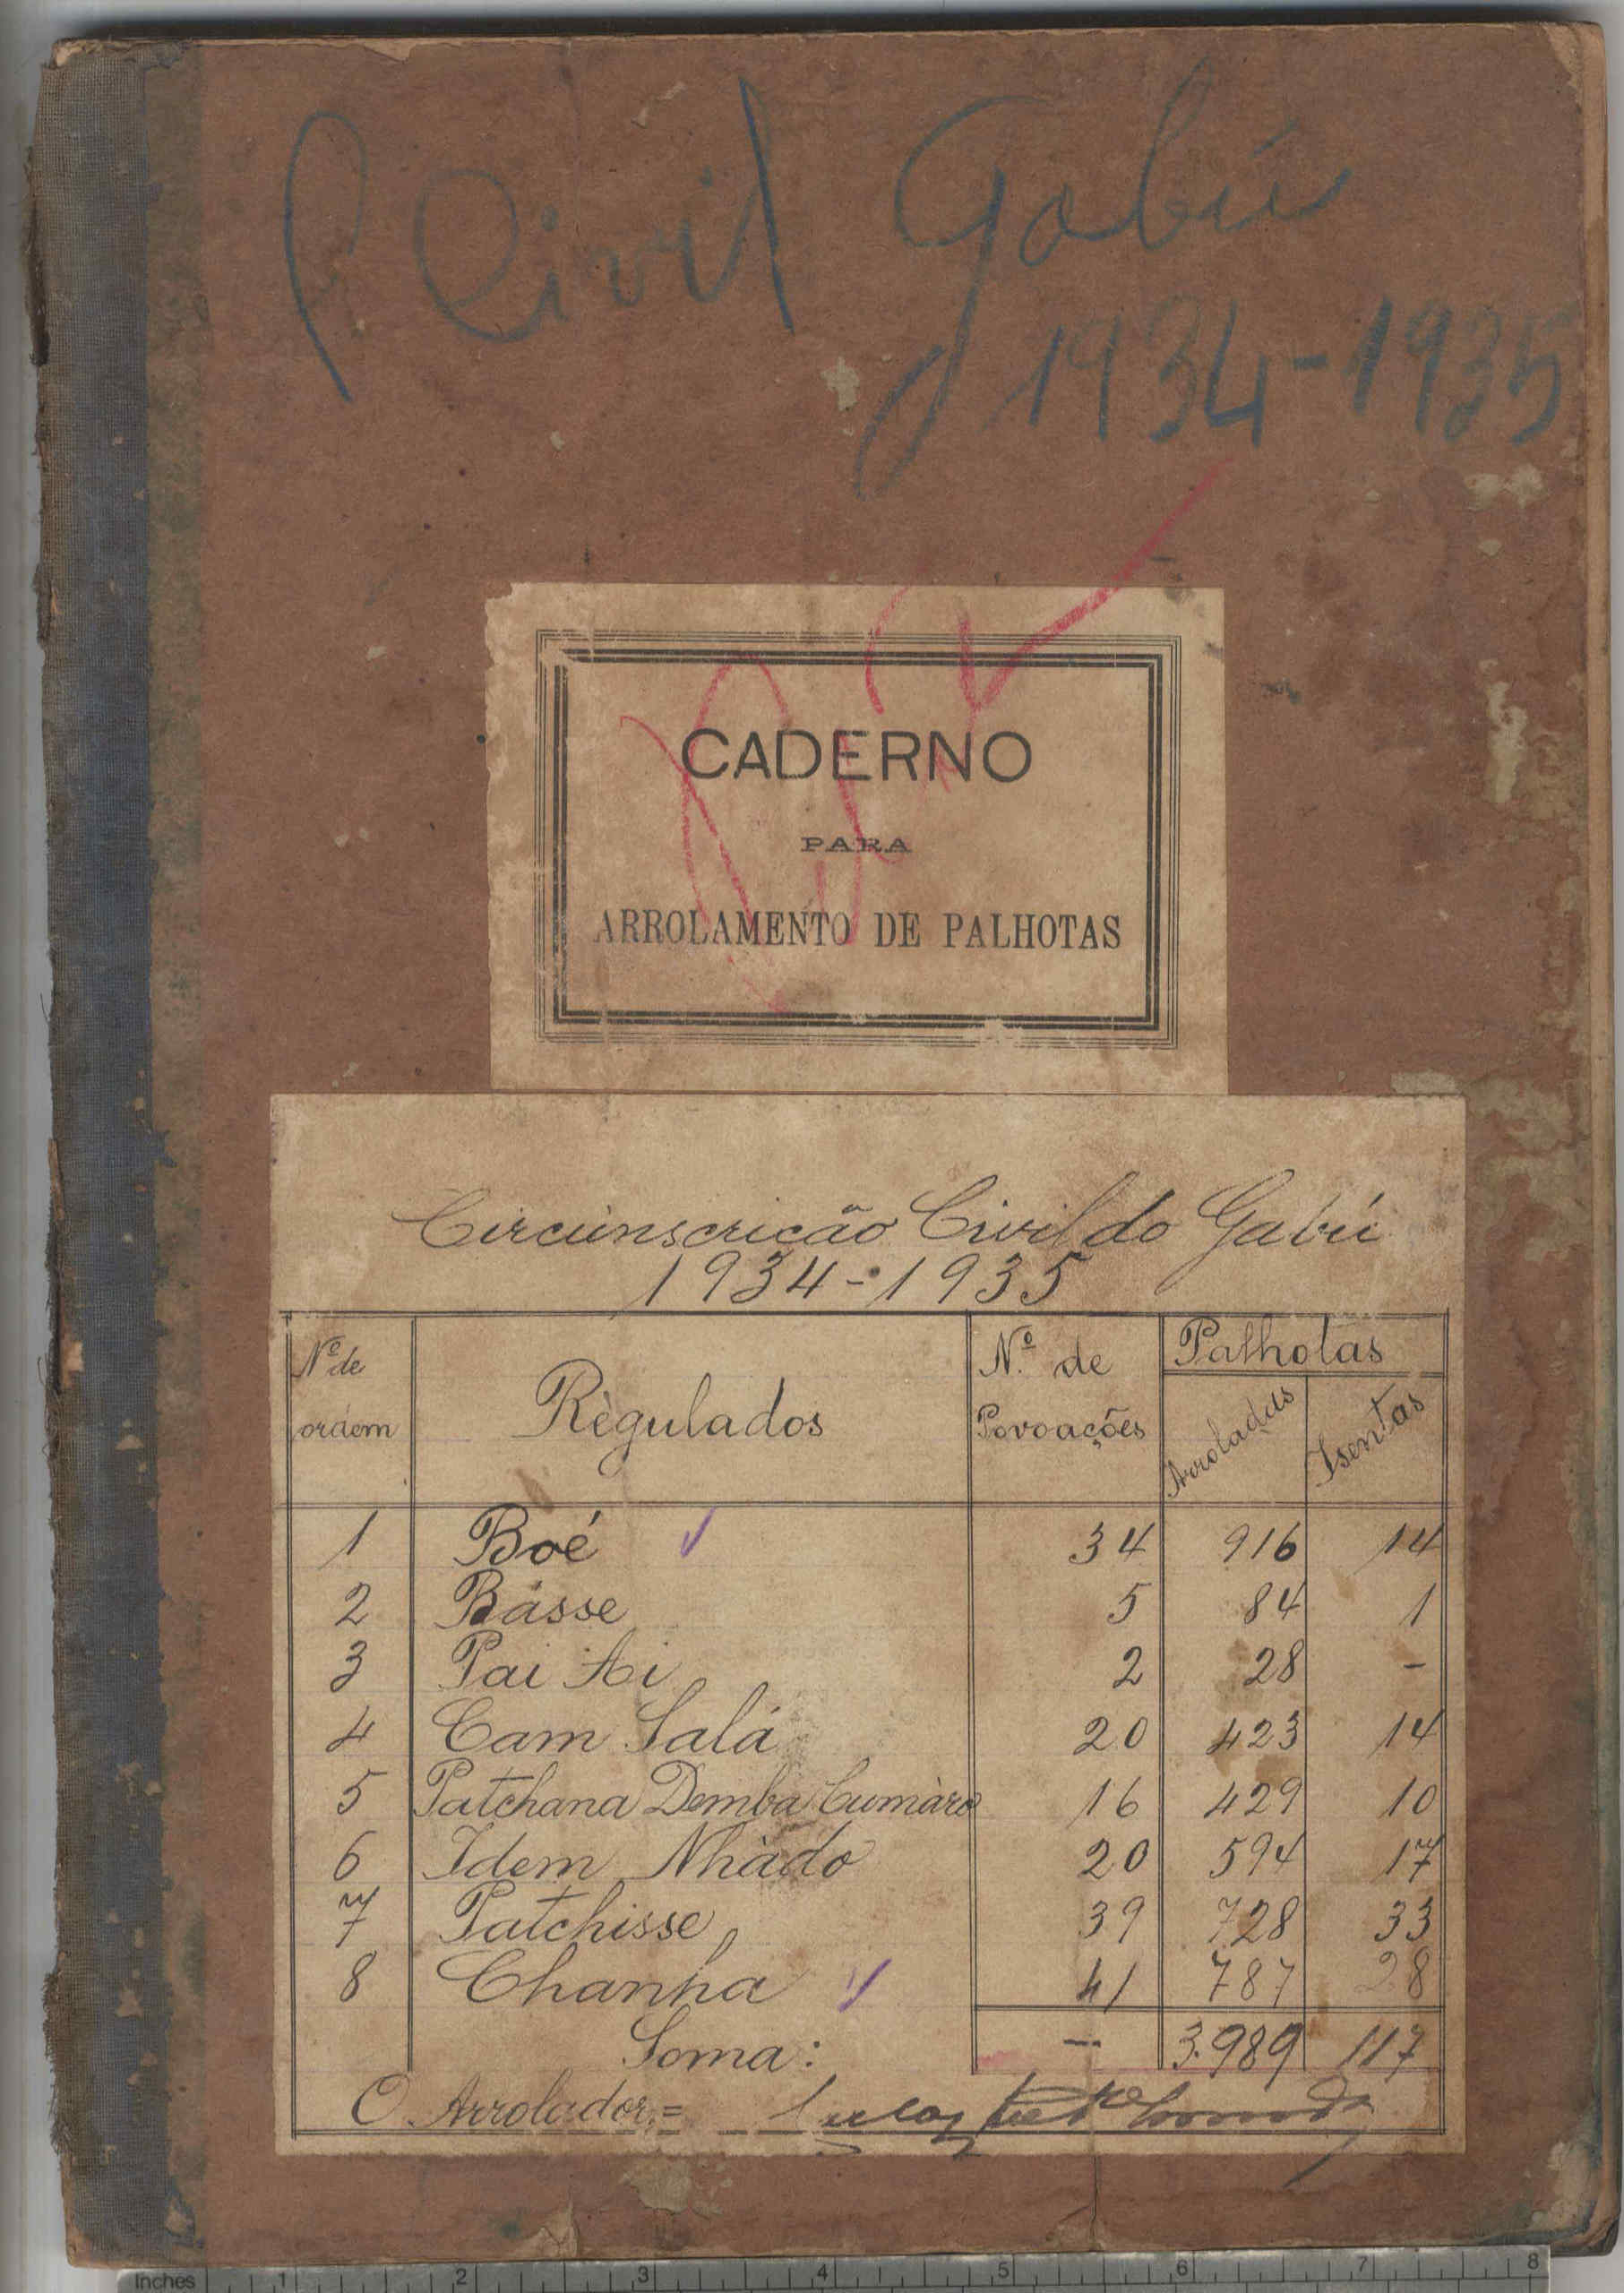 C. Civil Gabú
1934-1935
CADERNO
PARA
ARROLAMENTO DE PALHOTAS
Circunscrição Civil do Gabú
1934-1935
Nº de ordem Règulados Nº. de Povoações Palhotas Arroladas Isentas
1 Boé 34 916 14
2 Básse 5 84 1
3 Pai Ai 2 28 -
4 Cam Salá 20 423 14
5 Patchana Demba Cumàro 16 429 10
6 Idem Nhàdo 20 594 17
7 Patchisse 39 728 33
8 Chanha 41 787 28
Soma: — 3.989 117
O Arrolador =
Inches 1 2 3 4 5 6 7 8